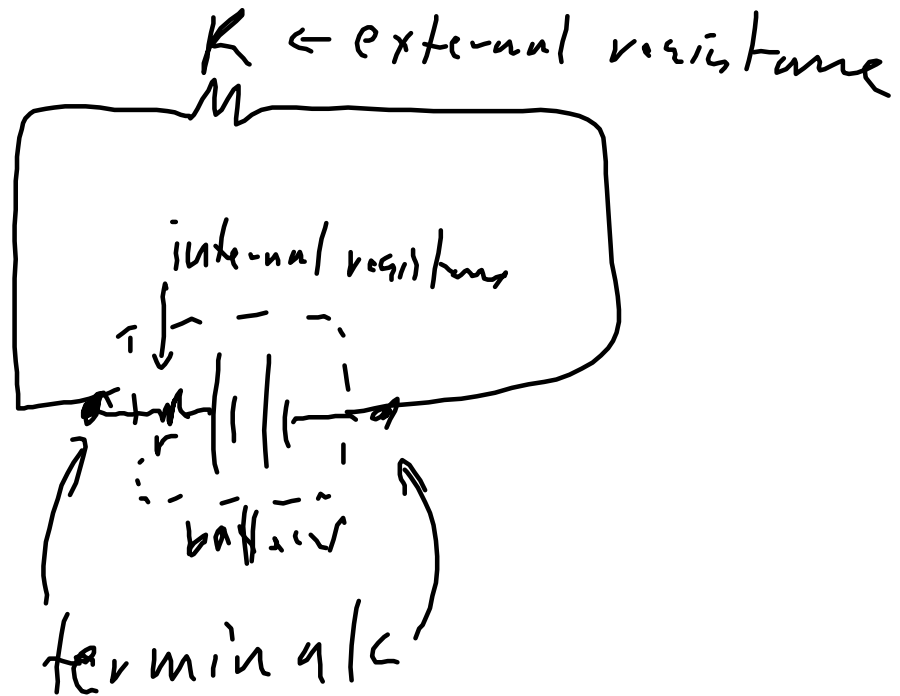 R ← external resistance
internal resistance
r
battery
terminals